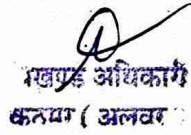 खण्ड अधिकारी
कठूमर ( अलवर